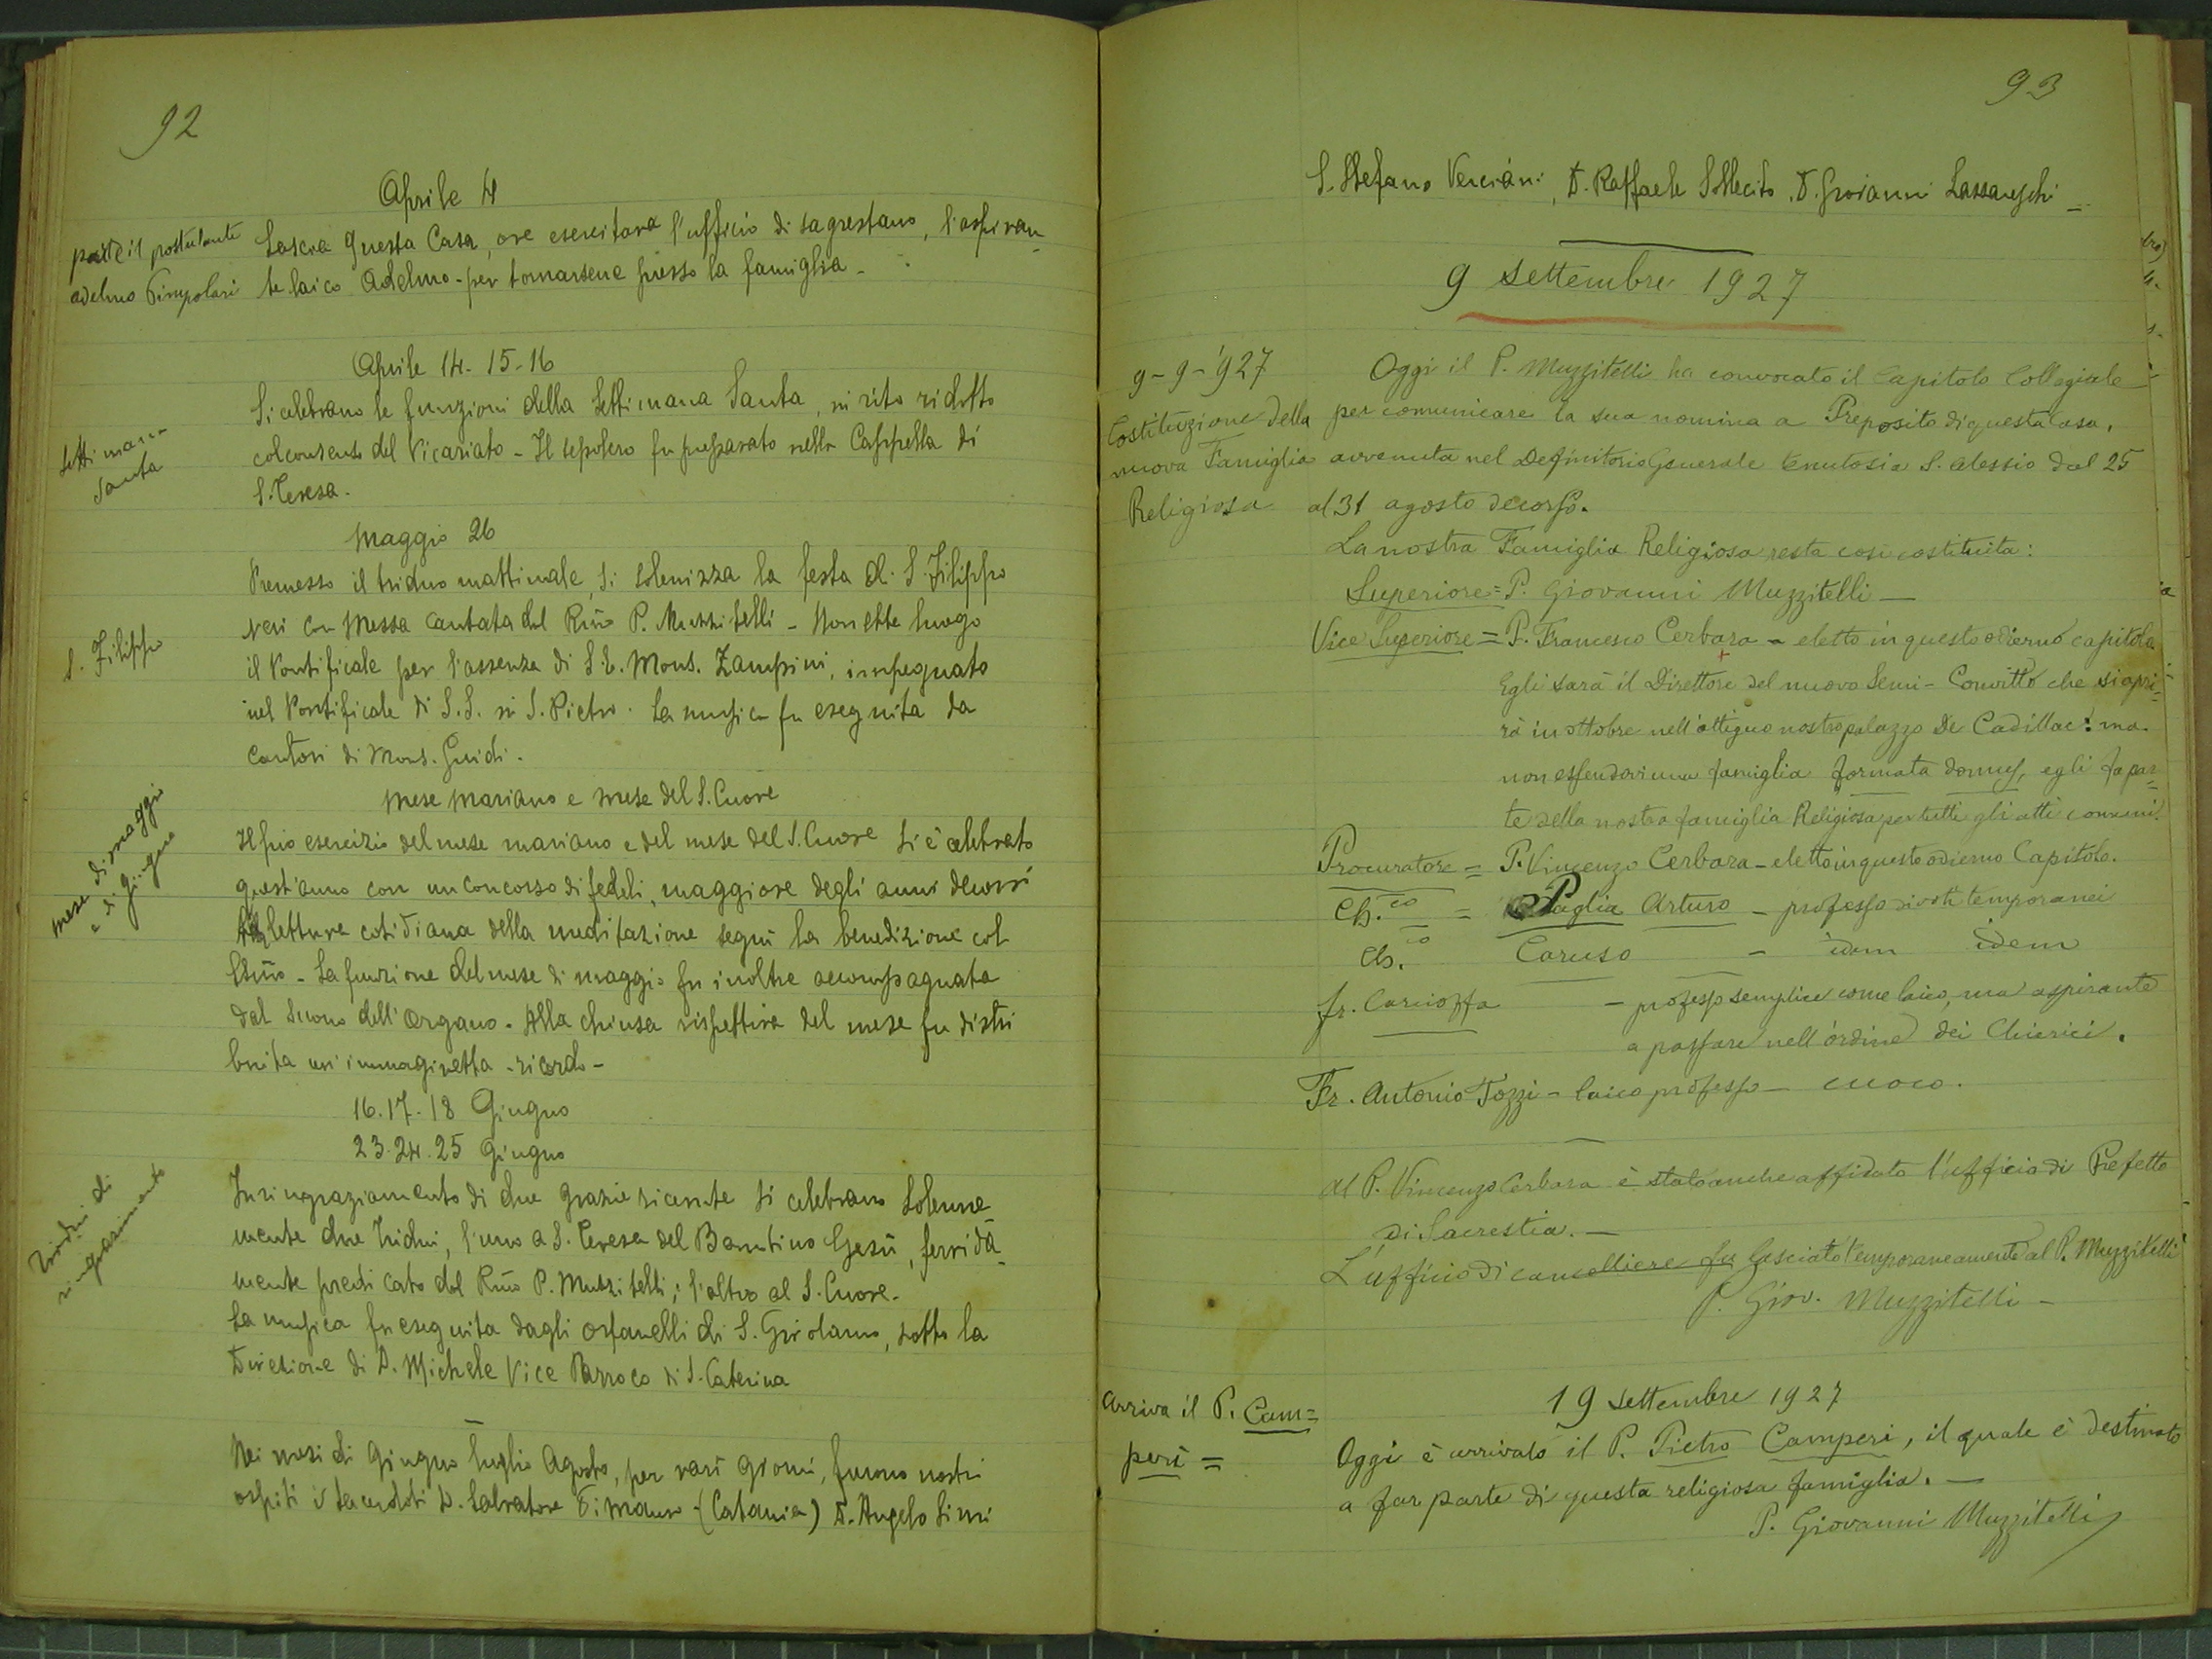 92
Aprile 4
parte il postulante
adelmo Timpolari
Lascia questa Casa, ove esercitava l'ufficio di sagrestano, l'aspiran-
te laico Adelmo - per tornarsene presso la famiglia -
Aprile 14-15-16
Settimana
Santa
Si celebrano le funzioni della Settimana Santa, in rito ridotto
col consenso del Vicariato - Il sepolcro fu preparato nella Cappella di
S. Teresa.
Maggio 26
S. Filippo
Premesso il triduo mattinale, si solenizza la festa di S. Filippo
Neri con Messa cantata dal Rmo P. Muzzitelli - Non ebbe luogo
il Pontificale per l'assenza di S. E. Mons. Zampini, impegnato
nel Pontificale di S. S. in S. Pietro. La musica fu eseguita da
Cantori di Mons. Guidi.
Mese Mariano e mese del S. Cuore
mese di maggio
e di giugno
Il pio esercizio del mese mariano e del mese del S. Cuore si è celebrato
quest'anno con un concorso di fedeli, maggiore degli anni decorsi
Alla lettura cotidiana della meditazione seguì la benedizione col
SSmo - La funzione del mese di maggio fu inoltre accompagnata
dal suono dell'organo. Alla chiusa rispettiva del mese fu distri
buita un'immaginetta - ricordo -
16.17.18 Giugno
23.24.25 Giugno
Tridui di
ringraziamento
In ringraziamento di due grazie ricevute si celebrano solenne
mente due Tridui, l'uno a S. Teresa del Bambino Gesù, fervida-
mente predicato dal Rmo P. Muzzitelli; l'altro al S. Cuore.
La musica fu eseguita dagli orfanelli di S. Girolamo, sotto la
Direzione di D. Michele Vice Parroco di S. Caterina
Nei mesi di Giugno luglio Agosto, per varî giorni, furono nostri
ospiti i Sacerdoti D. Salvatore Di Mauro - (Catania) D. Angelo Simi
93
S. Stefano Verciani, D. Raffaele Sollecito, D. Giovanni Lazzareschi -
9 Settembre 1927
9-9-'927
Costituzione della
nuova Famiglia
Religiosa
Oggi il P. Muzzitelli ha convocato il Capitolo Collegiale
per comunicare la sua nomina a Preposito di questa Casa,
avvenuta nel Definitorio Generale tenutosi a S. Alessio dal 25
al 31 agosto decorso.
La nostra Famiglia Religiosa resta così costituita:
Superiore = P. Giovanni Muzzitelli -
Vice Superiore = P. Francesco Cerbara - eletto in questo odierno capitolo
Egli sarà il Direttore del nuovo Semi-Convitto che si apri-
rà in ottobre nell'attiguo nostro palazzo De Cadillac: ma.
non essendovi una famiglia formata domus, egli fa par=
te della nostra famiglia Religiosa per tutti gli atti comuni.
Procuratore = P. Vincenzo Cerbara - eletto in questo odierno Capitolo.
Ch.co = Paglia Arturo - professo di voti temporanei
Ch.co Caruso - idem idem
fr. Carioffa - professo semplice come laico, ma aspirante
a passare nell'ordine dei Chierici.
Fr. Antonio Tozzi - laico professo - cuoco.
Al P. Vincenzo Cerbara è stato anche affidato l'ufficio di Prefetto
di Sacrestia. -
L'ufficio di cancelliere fu lasciato temporaneamente al P. Muzzitelli
P. Giov. Muzzitelli -
19 settembre 1927
Arriva il P. Cam=
peri =
Oggi è arrivato il P. Pietro Camperi, il quale è destinato
a far parte di questa religiosa famiglia. -
P. Giovanni Muzzitelli